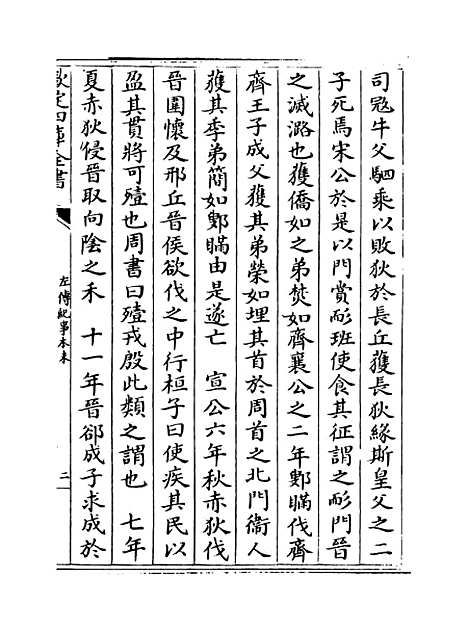 司寇牛父駟乘以敗狄於長丘獲長狄緣斯皇父之二
子死焉宋公於是以門賞耏班使食其征謂之耏門晉
之滅潞也獲僑如之弟焚如齊襄公之二年鄋瞞伐齊
齊王子成父獲其弟榮如埋其首於周首之北門衞人
獲其季弟簡如鄋瞞由是遂亡　宣公六年秋赤狄伐
晉圍懷及邢丘晉侯欲伐之中行桓子曰使疾其民以
盈其貫將可殪也周書曰殪戎殷此類之謂也　七年
夏赤狄侵晉取向陰之禾　十一年晉郤成子求成於
欽定四庫全書
左傳紀事本末
二